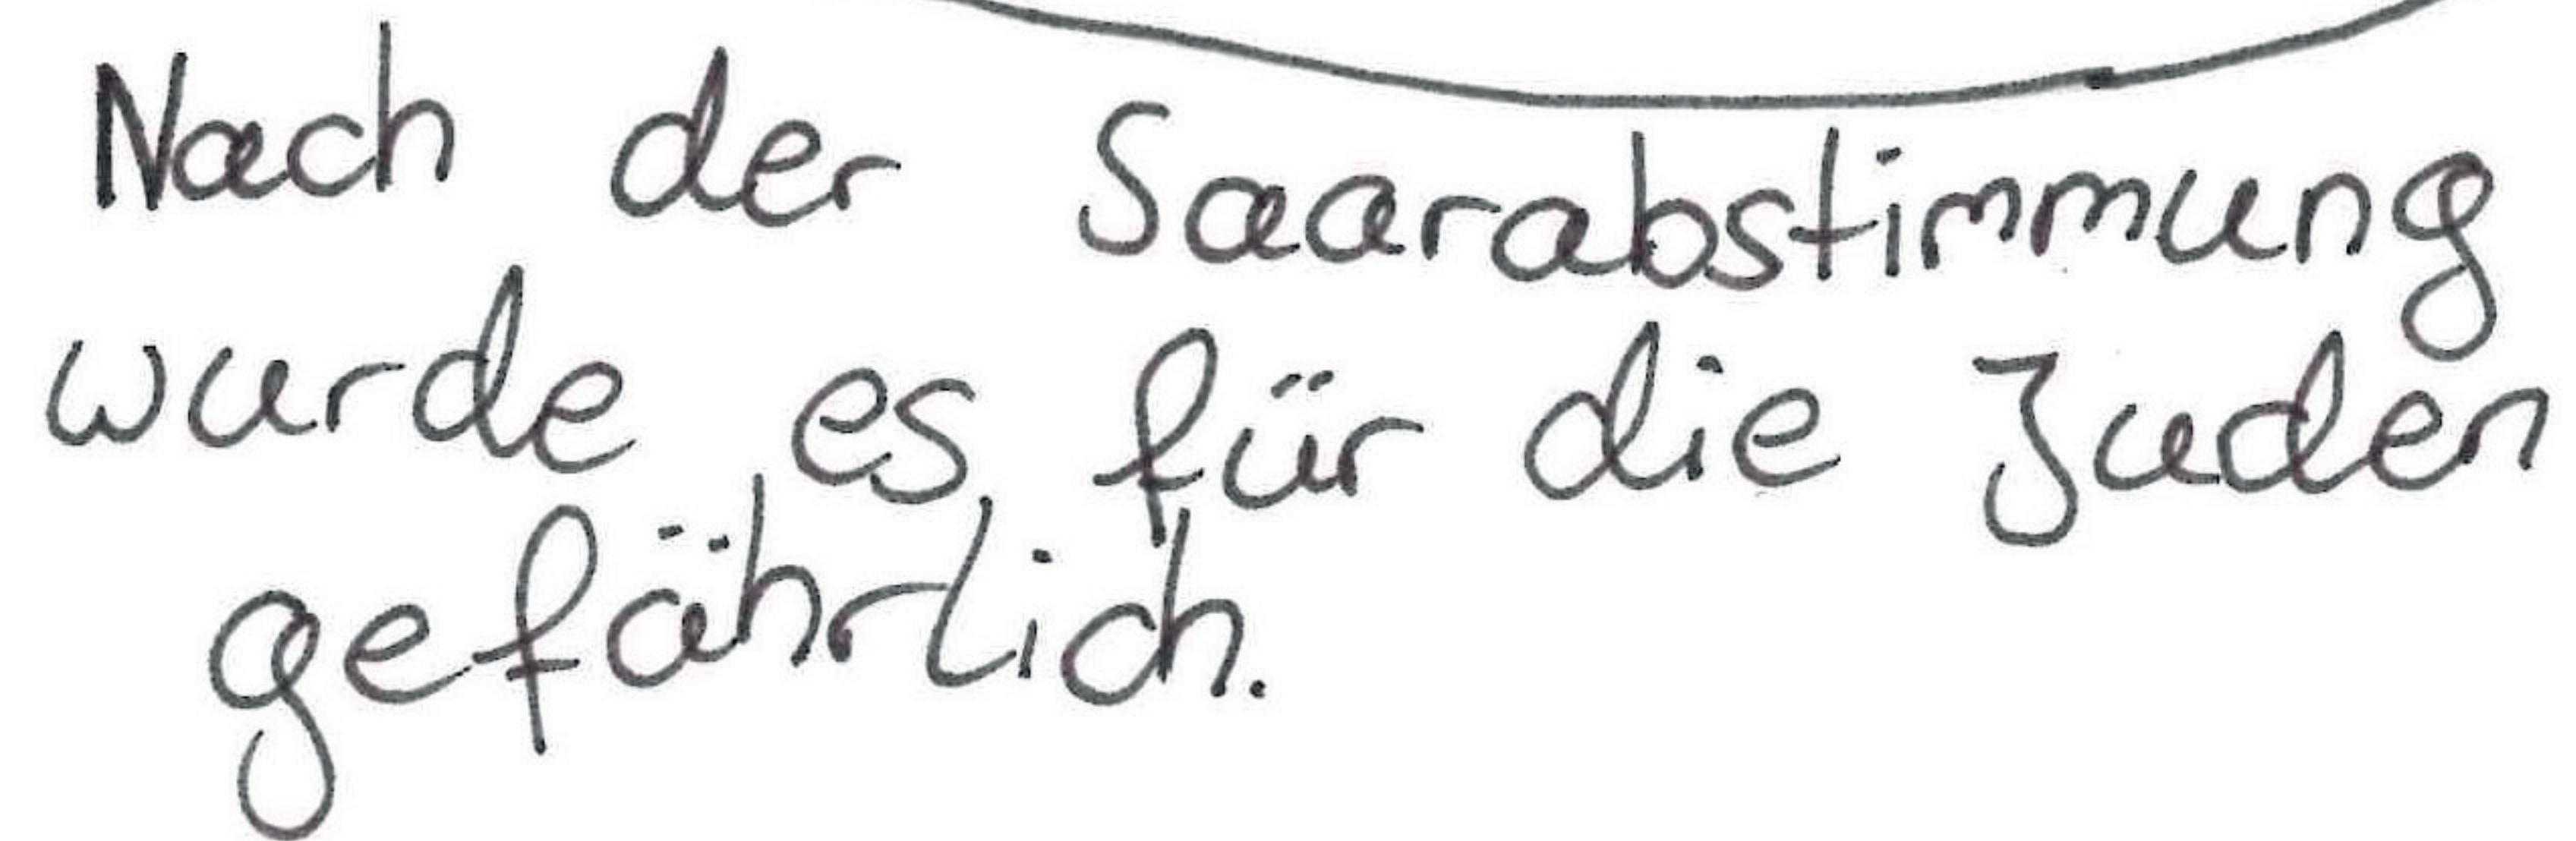 Nach der Saarabstimmung
wurde es für die Juden
gefährlich.